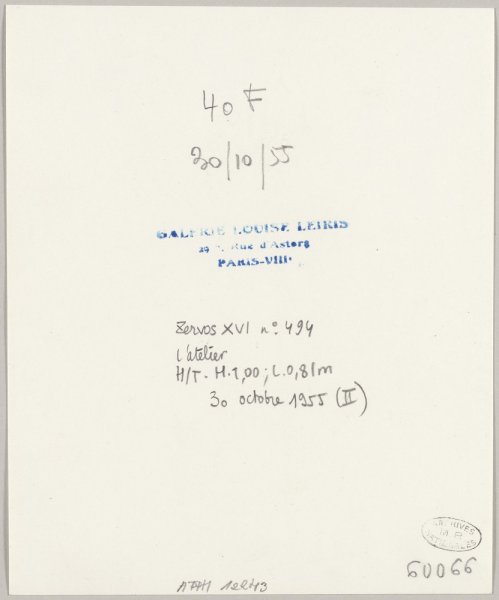 40 F
30/10/55
GALERIE LOUISE LEIRIS
Rue d'Astorg
PARIS-VIII
Zervos XVI n° 494
L'atelier
H/T. H.1,00; L.0,81m
30 octobre 1955 (II)
ARCHIVES
M.P.
NATIONALES
60066
12243